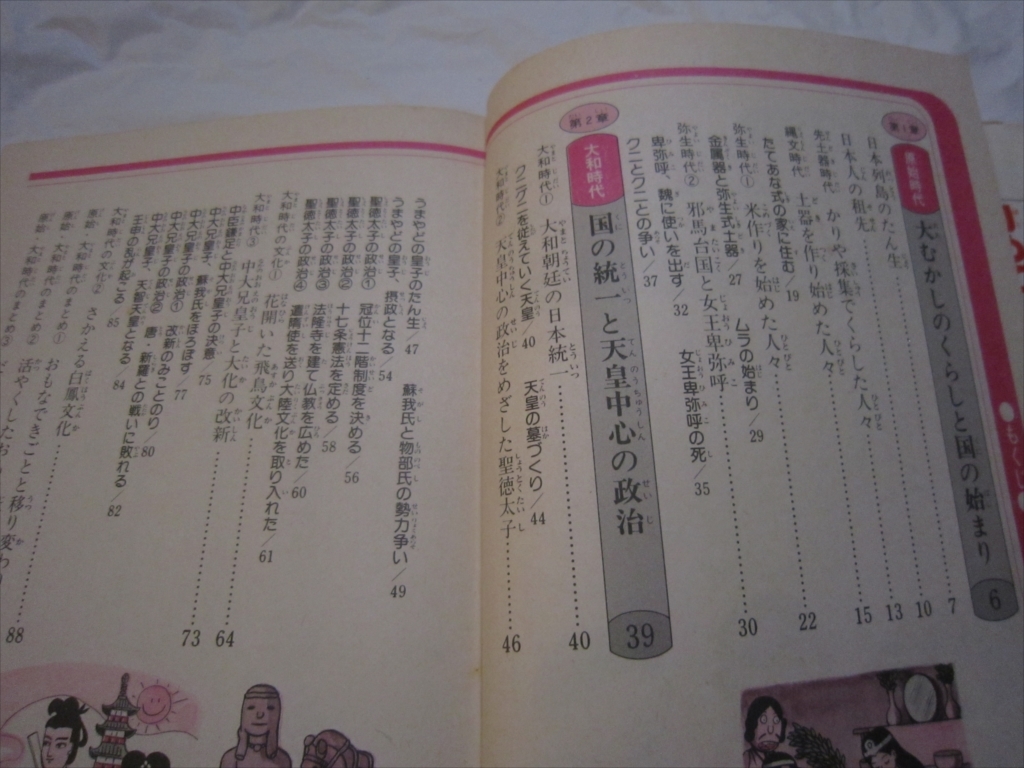 もくじ
第1章
原始時代
大むかしのくらしと国の始まり 6
日本列島のたん生 7
日本人の祖先 10
先土器時代 かりや採集でくらした人々 13
縄文時代 土器を作り始めた人々 15
たてあな式の家に住む/19
弥生時代① 米作りを始めた人々 22
金属器と弥生式土器/27 ムラの始まり/29
弥生時代② 邪馬台国と女王卑弥呼 30
卑弥呼、魏に使いを出す/32 女王卑弥呼の死/35
クニとクニとの争い/37
第2章
大和時代
国の統一と天皇中心の政治 39
大和時代① 大和朝廷の日本統一 40
クニグニを従えていく天皇/40 天皇の墓づくり/44
大和時代② 天皇中心の政治をめざした聖徳太子 46
うまやどの皇子のたん生/47 蘇我氏と物部氏の勢力争い/49
うまやどの皇子、摂政となる/54
聖徳太子の政治① 冠位十二階制度を決める/56
聖徳太子の政治② 十七条憲法を定める/58
聖徳太子の政治③ 法隆寺を建て仏教を広めた/60
聖徳太子の政治④ 遣隋使を送り大陸文化を取り入れた/61
大和時代の文化① 花開いた飛鳥文化 64
大和時代③ 中大兄皇子と大化の改新 73
中臣鎌足と中大兄皇子の決意/75
中大兄皇子、蘇我氏をほろぼす/77
中大兄皇子の政治① 改新のみことのり/80
中大兄皇子の政治② 唐・新羅との戦いに敗れる/82
中大兄皇子、天智天皇となる/84
壬申の乱が起こる/85
大和時代の文化② さかえる白鳳文化 88
原始・大和時代のまとめ① おもなできごとと移り変わり
原始・大和時代のまとめ② 活やくした
原始・大和時代のまとめ③